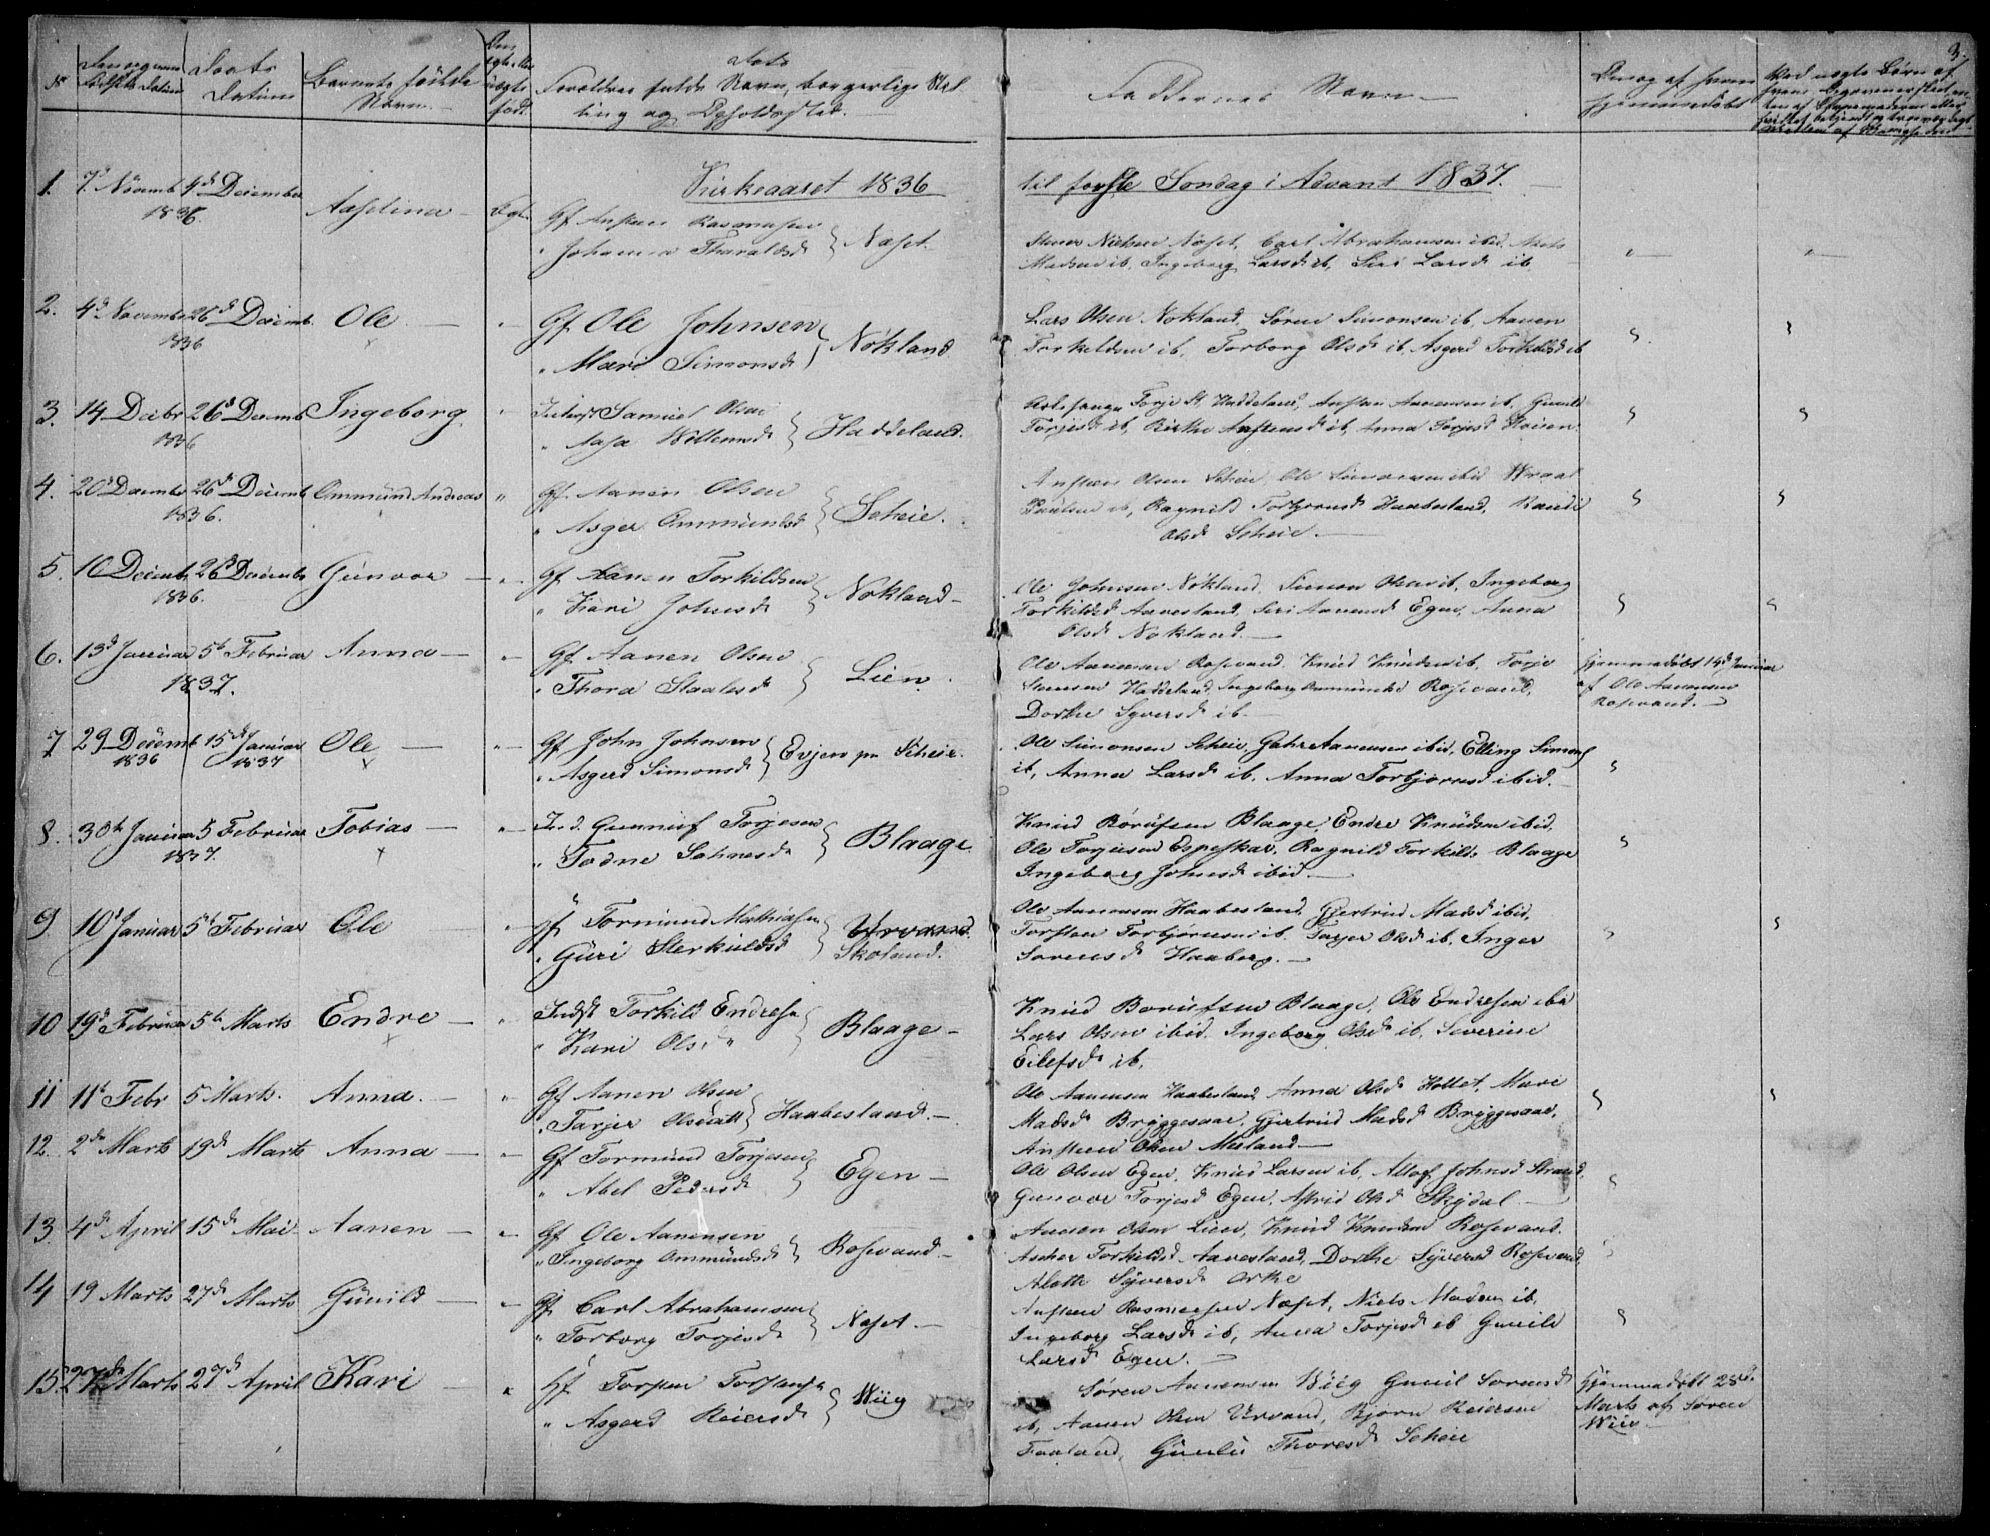 3.
N
Barnets fulde
Navn
Daabs
Datum
Forældres fulde Navn, borgerlige Stil
ling og Opholdssted.
Faddernes Navn
Hvad uægte Børn af
Kirkeaaret 1836
til første Søndag i Advent 1837.
1. 7d Novemb 4de December Aaselina Egte Gf Ansten Rasmusen
1836 " Johanna Tharaldsd } Næset.
Stener Nielsen Næset, Carl Abrahamsen ibid, Niels
Madsen ib, Ingeborg Larsd ib, Siri Larsd ib
2. 4d Novembr 26d Decemb. Ole Gf Ole Johnsen
1836 " Mari Simonsd } Nökland
Lars Olsen Nökland, Sören Simonsen ib, Aanen
Torkildsen ib, Torborg Olsd ib, Asgerd Torkildsd ib
3. 14 Decbr 26d Decemb Ingeborg. Samuel Olsen
1836 " Aasa Willumsd } Haddeland.
Torje St. Haddeland, Anstan Aanensen ib, Gunild
Torjesd ib, Birthe Anstensd ib, Anna Torjesd
4. 20d Decemb 26d Decemb Ommund Andreas " Gf. Aanen Olsen
1836. " Asger Ommundsd } Scheie.
Ansten Olsen Scheie, Ole Simonsen ibid Wraal
Paulsen ib, Ragnild Torbjornsd Haabesland, Randi
Olsd Scheie.
5. 10 Decemb 26d Decemb Gunvor Gf Aanen Torkildsen
1836. " Kari Johnsd } Nokland
Ole Johnsen Nökland, Simon Olsen ib, Ingeborg
Torkildsd Aavesland, Siri Aanensd Egen, Anna
Olsd Nokland.
6. 13d Januar 5te Februar Anna Gf Aanen Olsen
1837. " Thora Staalesd } Lien.
Ole Aanensen Rosevand, Knud Knudsen ib, Torje
Stensen Haddeland, Ingeborg Ommundsd Rosevand,
Dorthe Syversd ib.
Hjemmedöbt 14d Januar
af Ole Aanensen
Rosevand.
7 29 Decemb 15d Januar Ole Gf John Johnsen
1836 1837 " Asgerd Simonsd } Evjen pn Scheie.
Ole Simonsen Scheie, Gahre Aanensen ibid, Elling Simons
ib, Anna Larsd ib, Anna Torbjörnsd ibid.
8. 30te Januar 5 Februar Tobias Ind. Gunnuf Torjesen
1837. " Todne Sahnesd } Blaage
Knud Börufsen Blaage, Endre Knudsen ibid,
Ole Torjusen Espeskar, Ragnild Torkilds Blaage
Ingeborg Johnsd ibid.
9. 10d Januar 5d Februar Ole Gf Tormund Mathiasen
" Guri Sterkulsd } Urvand.
Skoland.
Ole Aanensen Haabesland, Gjertrud Madsd ibid,
Torsten Torbjörnsen ib. Tarjer Olsd ib, Inger
Sorensd Haaberg.
10 19d Februar 5te Marts Endre Indst Torkild Endresen
" Kari Olsd " } Blaage
Knud Borufsen Blaage, Ole Endresen ibd
Lars Olsen ibid. Ingeborg Olsd ib. Severine
Eilefsd ib.
11 11t Febr 5 Marts. Anna. Gf Aanen Olsen
" Tarjer Olsdatt } Haabesland.
Ole Aanensen Haabesland, Anna Olsd Hottet, Mari
Madsd Bryggesaae, Gjertrud Madsd Bryggesaae,
Ansten Olsen Mesland
12. 2de Marts 19de Marts Anna Gf Tormund Torjesen
" Abel Pedersd } Egen
Ole Olsen Egen, Knud Larsen ib, Johnsd Strand,
Gunvor Torjesd Egen, Astrid Olsd Skejdal
13. 4de April 15de Mai Aanen Gf Ole Aanensen
" Ingeborg Ommundsd } Rosevand
Aanen Olsen Lien, Knud Knudsen Rosevand.
Ascher Torkildsd Aavesland, Dorthe Syversd Rosevand,
Alette Syversd
14 19 Marts 27de Marts Gunild Gf. Carl Abrahamsen
" Torborg Torjesd } Næset.
Ansten Rasmussen Næset, Niels Madsen ib,
Ingeborg Larsd ib, Anna Torjesd ib Gunild
Larsd Egen.
15. 27de Marts 27de April Kari Gf. Torsten Torstensen
" Asgerd Reiersd } Wiig
Sören Aanensen Wiig Gunil Sorensd
ib, Aanen Olsen Urvand, Bjørn Reiersen
Faaland, Gunild Thoresd Scheie
Hjemmedöbt 28de
Marts af Sören
Wiig